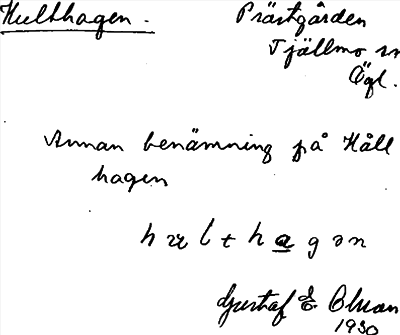 Hulthagen. Prästgården
Tjällmo sn
Ögl.
Annan benämning på Håll
hagen
hulthagen
Gustaf E. Olson
1930